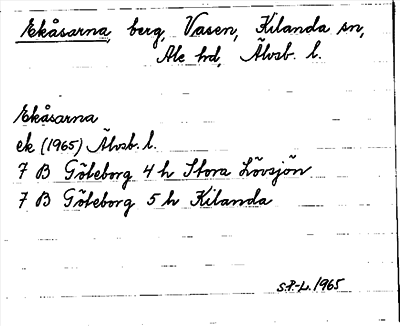 Ekåsarna, berg, Vasen, Kilanda sn,
Ale hd, Älvsb. l.
Ekåsarna
ek (1965) Älvsb. l.
7 B Göteborg 4 h Stora Lövsjön
7 B Göteborg 5 h Kilanda
S.P-L. 1965